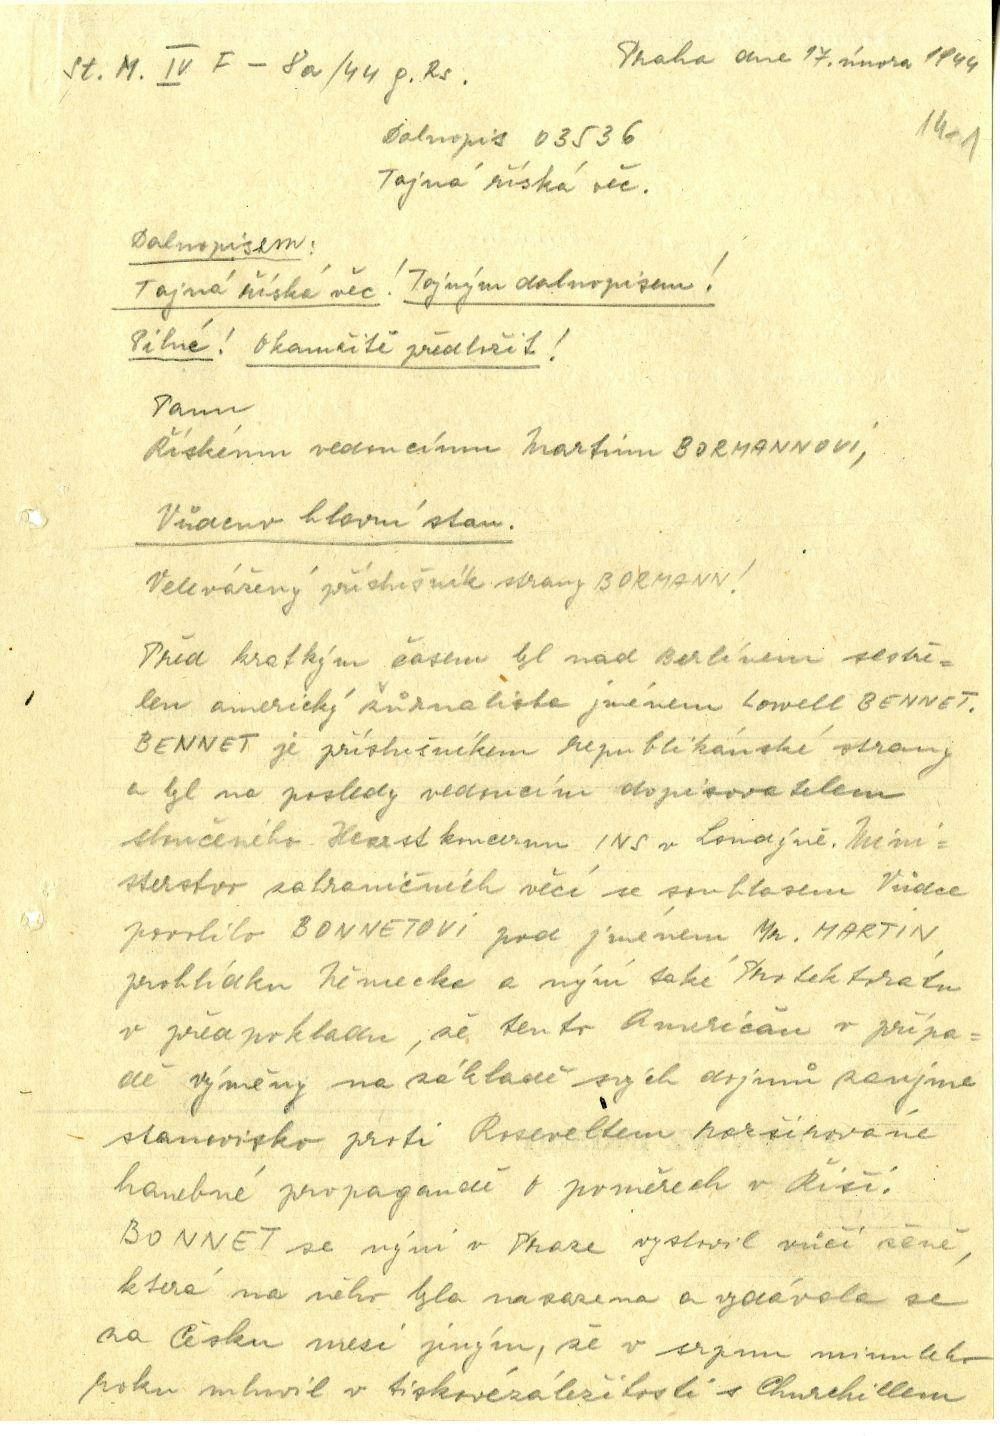 St. M. IV F - 8a/44 g. Rs.
Praha dne 17. února 1944
14-1
Dalnopis 03536
Tajná říská věc.
Dalnopisem:
Tajná říská věc! Tajným dalnopisem!
Pilné! Okamžitě předložit!
Panu
Řískému vedoucímu Martinu BORMANNOVI,
Vůdcův hlavní stan.
Velevážený příslušník strany BORMANN!
Před kratkým časem byl nad Berlínem sestře=
len americký žůrnalista jménem Lowell BENNET.
BENNET je příslušníkem republikánské strany
a byl na posledy vedoucím dopisovatelem
sloučeného Hearst koncernu INS v Londýně. Mini=
sterstvo zahraničních věcí se souhlasem Vůdce
povolilo BONNETOVI pod jménem Mr. MARTIN
prohlídku Německa a nyní také Protektorátu
v předpokladu, že tento Američan v přípa=
dě výměny na základě svých dojmů zaujme
stanovisko proti Roseveltem rozšiřované
hanebné propagandě o poměrech v Říši.
BONNET se nyní v Praze vyslovil vůči ženě,
která na něho byla nasazena a vydávala se
za Česku mezi jiným, že v srpnu minuleho
roku mluvil v tiskovézáležitosti s Churchillem